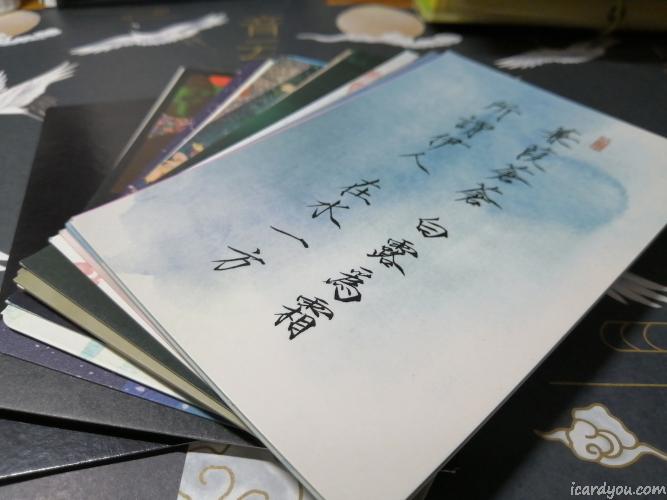 蒹葭蒼蒼 白露爲霜
所謂伊人 在水一方
音
icardyou.com